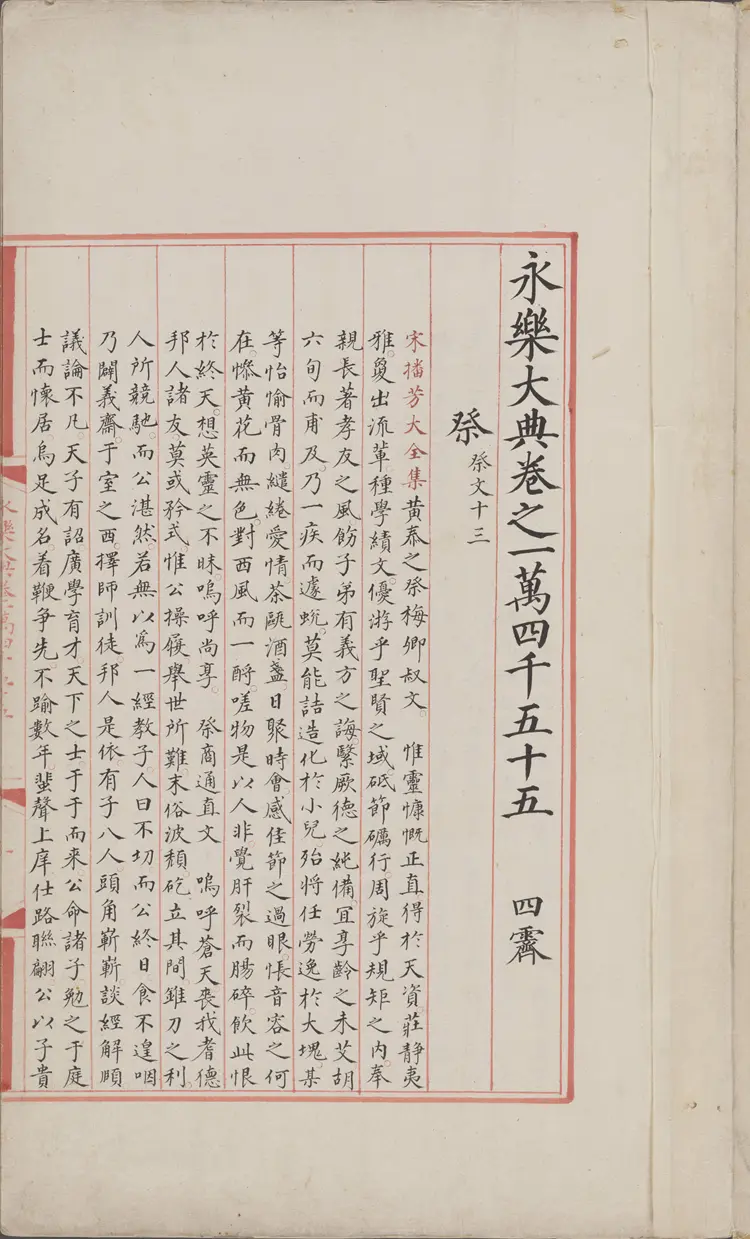 永樂大典卷之一萬四千五百十五 四霽
祭 祭文十三
宋播芳大全集黃泰之祭梅卿叔文。 惟靈慷慨正直得於天資莊靜夷
雅。敻出流輩種學績文。優游乎聖賢之域砥節礪行。周旋乎規矩之内奉
親長著孝友之風飭子弟有義方之誨繄厥德之純備。宜享齡之未艾胡
六旬而甫及。乃一疾而遽蛻。莫能詰造化於小兒殆將任勞逸於大塊。某
等怡愉骨肉。繾綣愛情茶甌酒盞。日聚時會。感佳節之過眼。悵音容之何
在。慘黃花而無色。對西風而一酹。嗟物是以人非覺肝裂而腸碎。飲此恨
於終天。想英靈之不昧。嗚呼尚享。 祭商通直文 嗚呼蒼天喪我耆德
邦人諸友。莫或矜式。惟公操履。舉世所難。末俗波頹。矻立其間。錐刀之利。
人所競馳。而公湛然。若無以爲一經教子。人曰不切而公終日食不遑咽
乃闢義齋。于室之西。擇師訓徒。邦人是依。有子八人。頭角嶄嶄。談經解頤
議論不凡。天子有詔。廣學育才。天下之士。于于而来。公命諸子。勉之于庭
士而懷居。烏足成名。着鞭爭先。不踰數年。蜚聲上庠仕路聯翩。公以子貴